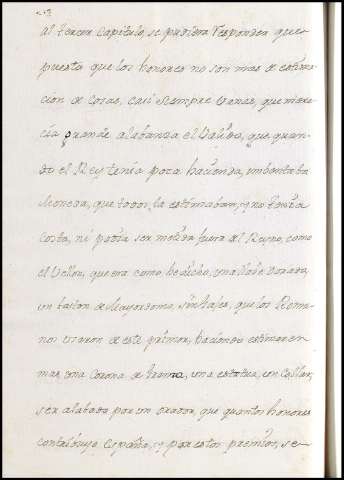 al tercer capitulo, se pudiera responder que
puesta que los honores no son mas de estima
cion de cosas, casi siempre vanas, que mere
cia grande alabanza el Valido, que quan-
do el Rey tenía poca hacienda, imbentaba
Moneda, que todos la estimaban, y no tenia
costa, ni podia ser metida fuera del Reyno, como
el Vellon, que era como he dicho, una llave dorada,
un baston de Mayordomo, sin gajes, que los Roma
nos usaron de este primor, haciendo estimar en
mas, una Corona de grama, una estatua, un Collar,
ser alabado por un orador, que quantos honores
contribuyó España, y por estos premios, se